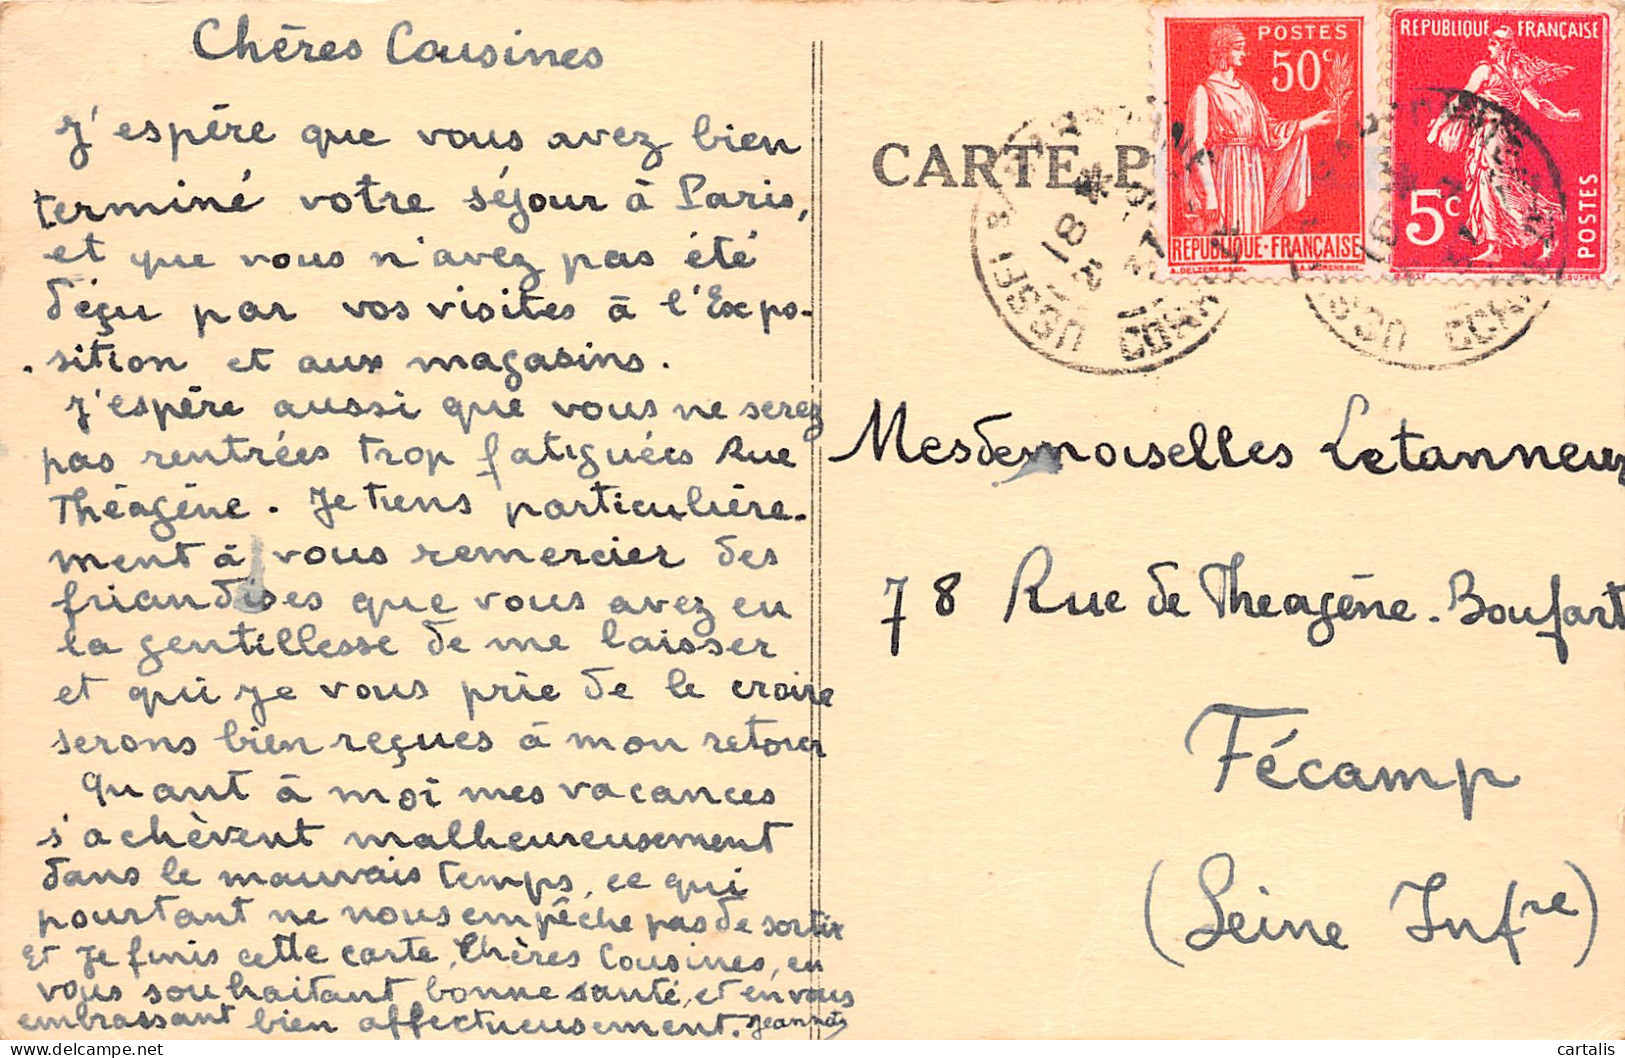 Chères Cousines
J'espère que vous avez bien
terminé votre séjour à Paris,
et que vous n'avez pas été
déçu par vos visites à l'Expo-
sition et aux magasins.
J'espère aussi que vous ne serez
pas rentrées trop fatiguées Rue
Théagène. Je tiens particulière-
ment à vous remercier des
friandises que vous avez eu
la gentillesse de me laisser
et qui je vous prie de le croire
serons bien reçues à mon retour
Quant à moi mes vacances
s'achèvent malheureusement
dans le mauvais temps, ce qui
pourtant ne nous empêche pas de sortir
Et je finis cette carte, Chères Cousines, en
vous souhaitant bonne santé, et en vous
embrassant bien affectueusement.
CARTE P
POSTES
50c
REPUBLIQUE·FRANÇAISE
REPUBLIQUE FRANÇAISE
5c
POSTES
USSEL
CORRÈZE
18
Mesdemoiselles Letanneur
78 Rue de Theagène-Boufart
Fécamp
(Seine Infre)
cartalis